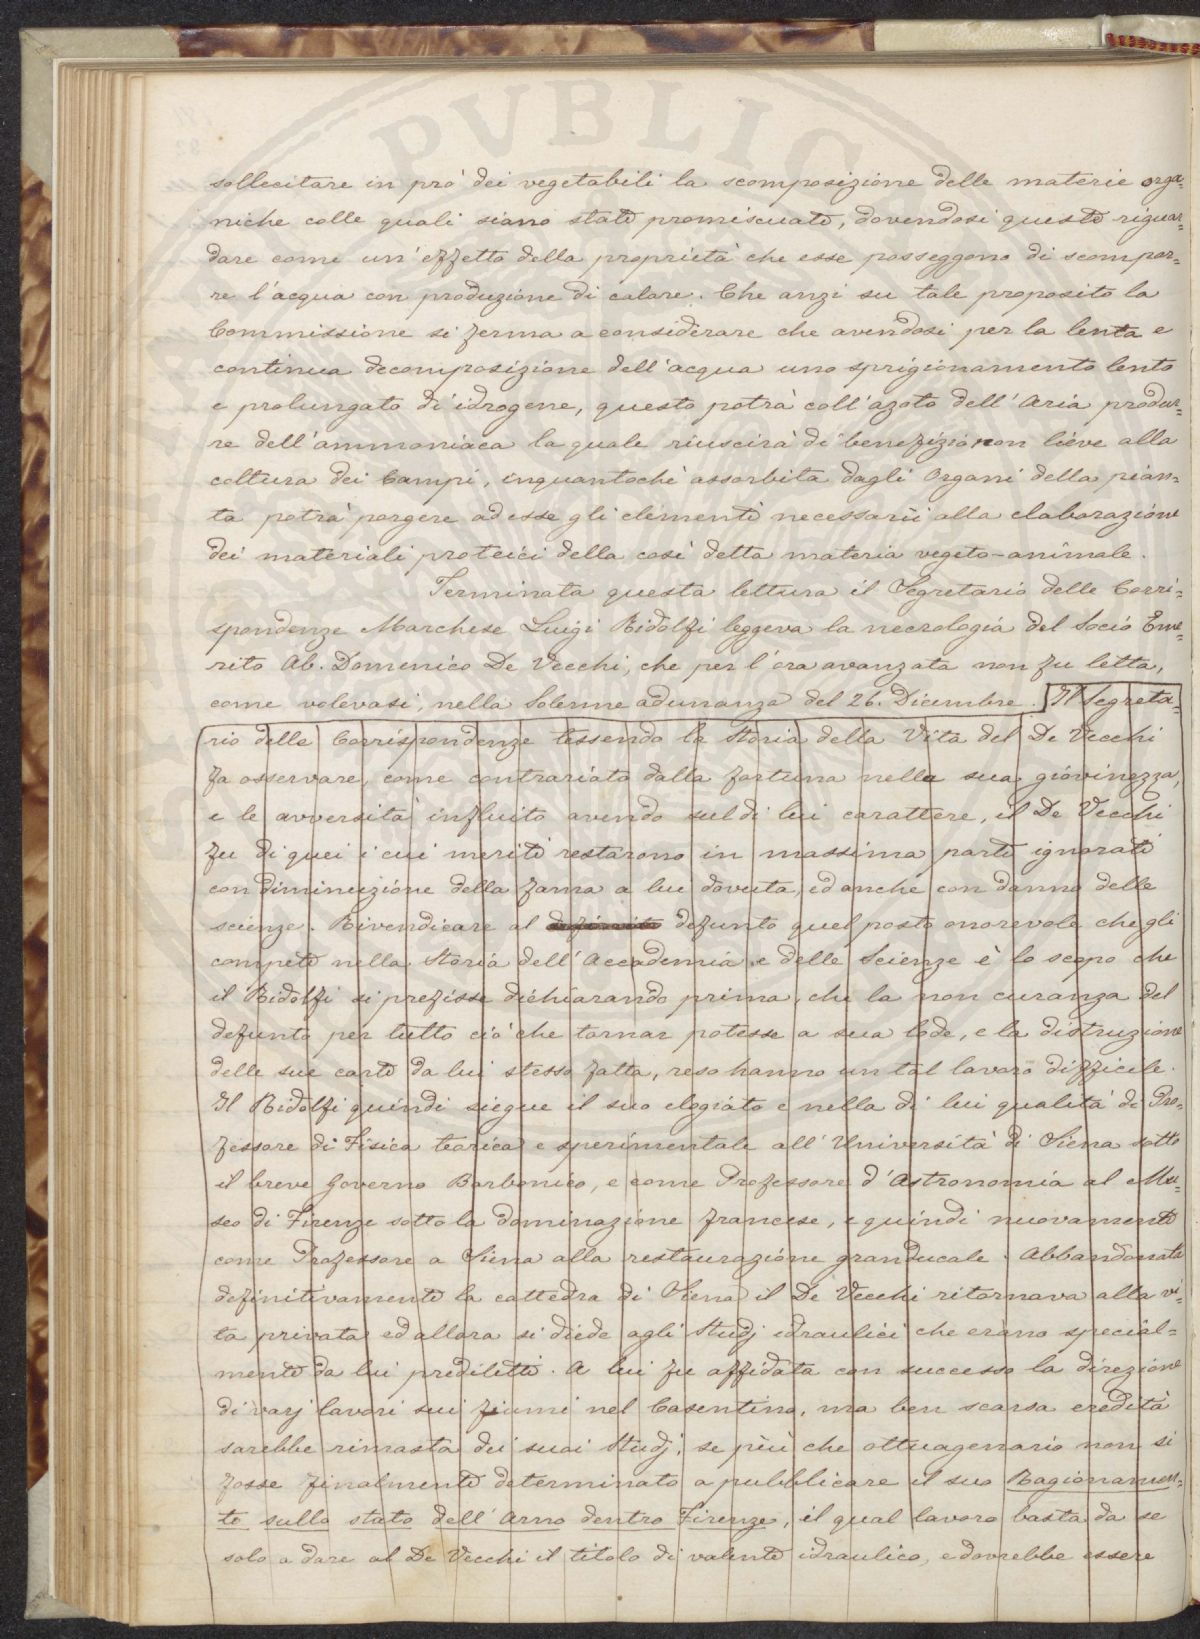 sollecitare in prò dei vegetabili la scomposizione delle materie orga=
niche colle quali siano state promiscuate, dovendosi queste riguar=
dare come un'effetto della proprietà che esse posseggono di scompor=
re l'acqua con produzione di calore. Che anzi su tale proposito la
Commissione si ferma a considerare che avendosi per la lenta e
continua decomposizione dell'acqua uno sprigionamento lento
e prolungato di idrogene, questo potrà coll'azoto dell'Aria produr=
re dell'ammoniaca la quale riuscirà di benefizio non lieve alla
coltura dei Campi, inquantochè assorbita dagli Organi della pian=
ta potrà porgere ad esse gli elementi necessarii alla elaborazione
dei materiali proteici della così detta materia vegeto-animale.
Terminata questa lettura il Segretario delle Corri=
spondenze Marchese Luigi Ridolfi leggeva la necrologia del Socio Eme=
rito Ab. Domenico De Vecchi, che per l'ora avanzata non fu letta,
come volevasi, nella Solenne adunanza del 26. Dicembre. Il Segreta=
rio delle Corrispondenze tessendo la Storia della Vita del De Vecchi
fa osservare, come contrariato dalla fortuna nella sua giovinezza,
e le avversità influito avendo sul di lui carattere, il De Vecchi
fu di quei i cui meriti restarono in massima parte ignorati
con diminuzione della fama a lui dovuta, ed anche con danno delle
scienze. Rivendicare al defunto quel posto onorevole che gli
compete nella Storia dell'Accademia e delle Scienze è lo scopo che
il Ridolfi si prefisse dichiarando prima, che la non curanza del
defunto per tutto ciò che tornar potesse a sua lode, e la distruzione
delle sue carte da lui stesso fatta, reso hanno un tal lavoro difficile.
Il Ridolfi quindi siegue il suo elogiato e nella di lui qualità di Pro=
fessore di Fisica teorica e sperimentale all'Università di Siena sotto
il breve Governo Borbonico, e come Professore d'Astronomia al Mu=
seo di Firenze sotto la dominazione francese, e quindi nuovamente
come Professore a Siena alla restaurazione granducale. Abbandonata
definitivamente la cattedra di Siena il De Vecchi ritornava alla vi=
ta privata ed allora si diede agli Studj idraulici che erano special=
mente da lui prediletti. A lui fu affidata con successo la direzione
di varj lavori sui fiumi nel Casentino, ma ben scarsa eredità
sarebbe rimasta dei suoi Studj, se più che ottuagenario non si
fosse finalmente determinato a pubblicare il suo Ragionamen=
to sullo stato dell'Arno dentro Firenze, il qual lavoro basta da se
solo a dare al De Vecchi il titolo di valente idraulico, e dovrebbe essere